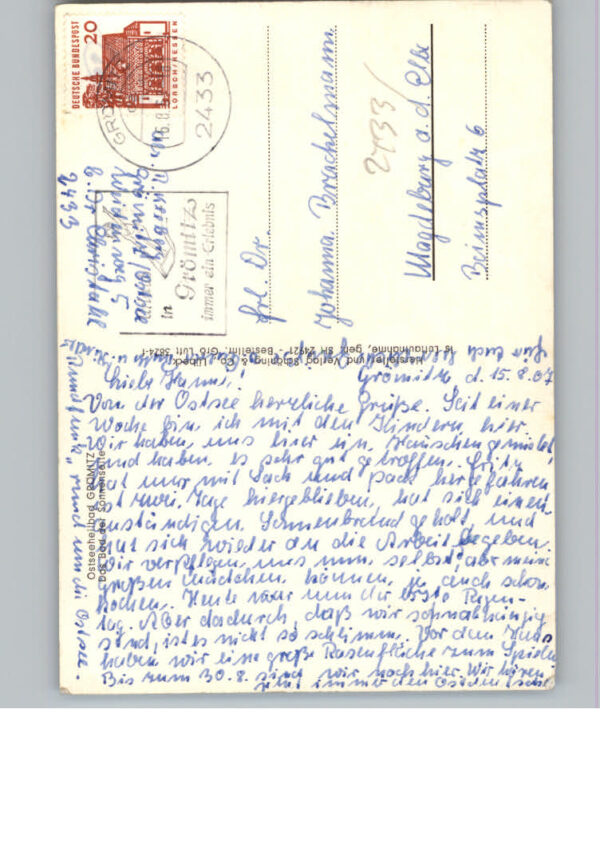 DEUTSCHE BUNDESPOST
20
LORSCH/HESSEN
GRÖMITZ
16.8.
2433
in
Grömitz
immer ein Erlebnis
Grömitz
2433
Frl. Dr.
Johanna Brachelmann
2433/
Magdeburg a. d. Elbe
Beimsplatz 6
Hersteller und Verlag Schöning & Co., Lübeck
Ostseeheilbad GRÖMITZ
Das Bad der Sonnenseite
Grömitz d. 15.8.67
Liebe Hanna!
Von der Ostsee herzliche Grüße. Seit einer
Woche bin ich mit den Kindern hier.
Wir haben uns hier ein Häuschen gemietet
und haben es sehr gut getroffen. Fritz
hat uns mit Sack und Pack hergefahren
ist zwei Tage hiergeblieben, hat sich einen
anständigen Sonnenbrand geholt, und
hat sich wieder an die Arbeit begeben.
Wir verpflegen uns nun selbst, aber meine
großen Mädchen können ja auch schon
kochen. Heute war nun der erste Regen-
tag. Aber dadurch, daß wir so unabhängig
sind, ist es nicht so schlimm. Vor dem Haus
haben wir eine große Rasenfläche zum Spielen
Bis zum 30.8. sind wir noch hier. Wir hören
jetzt immer den
"Rundfunk" rund um die Ostsee.